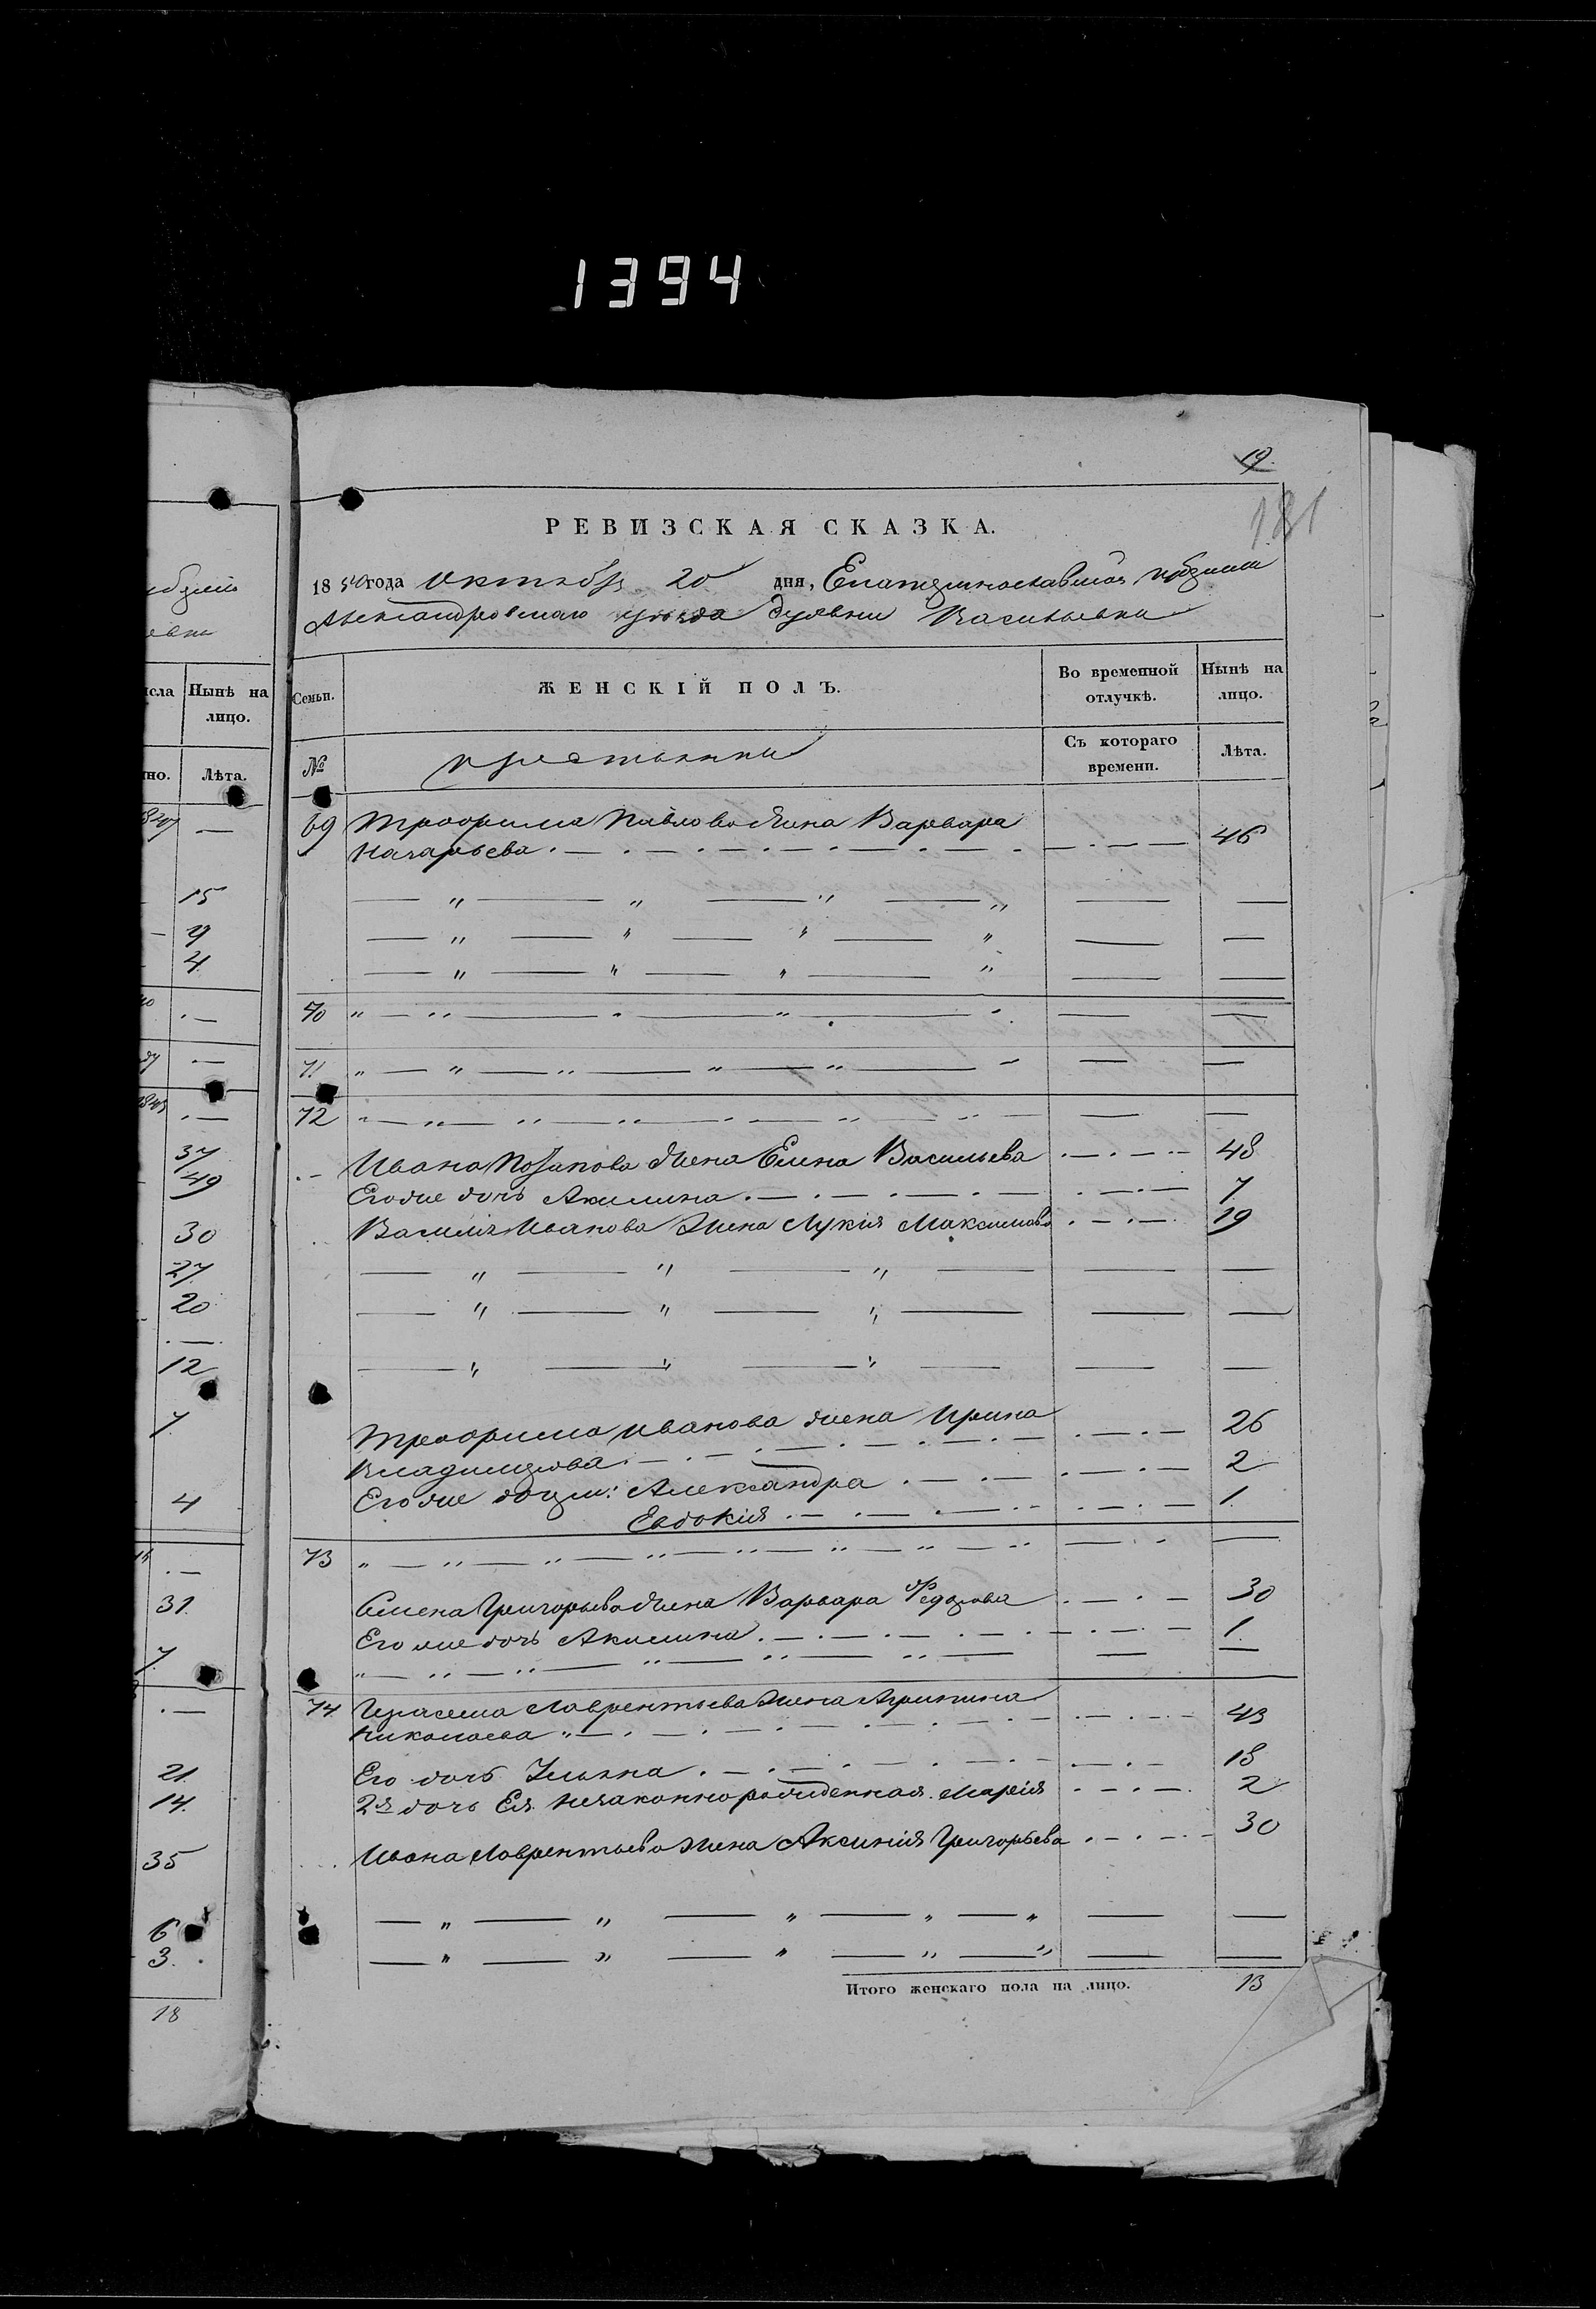 1394
19.
181
РЕВИЗСКАЯ СКАЗКА.
1850 года Октября 20 дня, Екатеринославской губернии
Александровскаго уѣзда деревни Васильевки
исла
Нынѣ на лицо.
Семьи.
ЖЕНСКІЙ ПОЛЪ.
Во временной отлучкѣ.
Нынѣ на лицо.
но.
Лѣта.
№
крестьянки
Съ котораго времени.
Лѣта.
69 Трофима Павлова жена Варвара
Назарьева 46
70
71
72
Ивана Потапова жена Елена Васильева 48
Егоже дочь Акилина 7
Василія Иванова жена Лукія Максимова 19
Трофима Иванова жена Ирина
Владимірова 26
Егоже дочери: Александра 2
Евдокія 1
73
Семена Григорьева жена Варвара Федорова 30
Егоже дочь Акилина 1
74 Герасима Лаврентьева жена Агрипина
Николаева 43
Его дочь Ульяна 18
2я дочь Ея незаконнорожденная Марія 2
Ивана Лаврентьева жена Аксинія Григорьева 30
Итого женскаго пола на лицо. 13
15
9
4
37
49
30
27
20
12
7
4
31
7
21
14
35
6
3
18